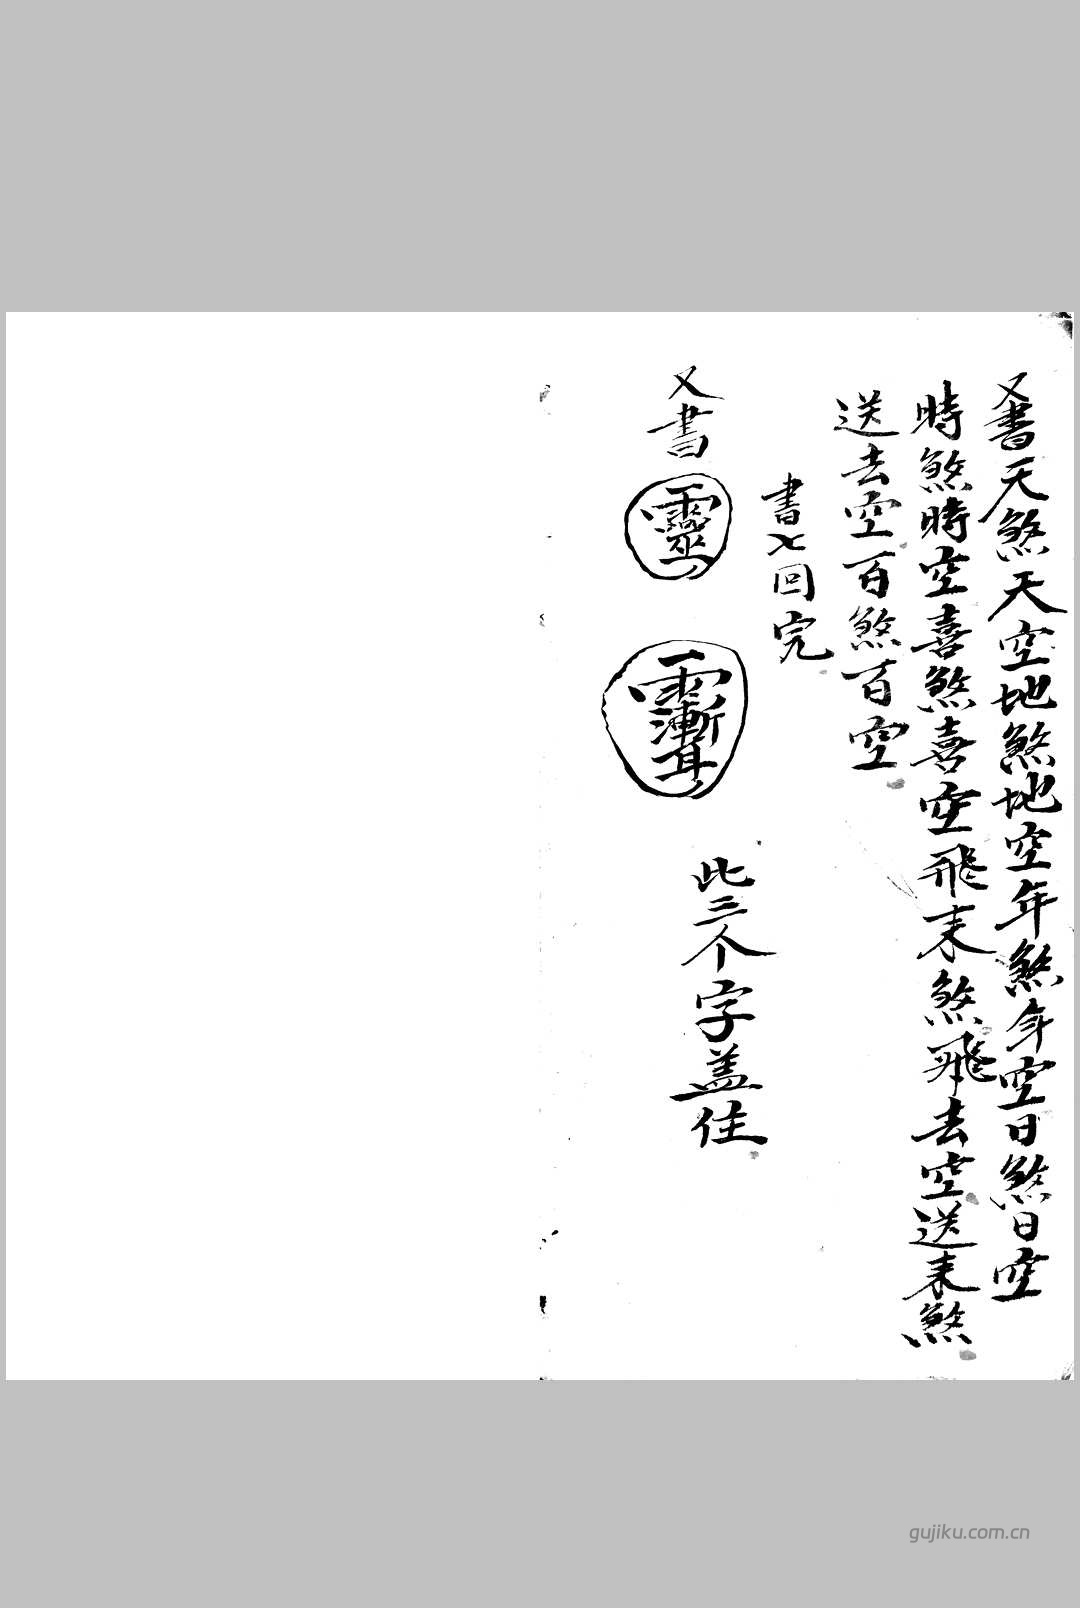 又書天煞天空地煞地空年煞年空日煞日空
時煞時空喜煞喜空飛来煞飛去空送来煞
送去空百煞百空
書七回完
又書 靈
此三个字盖住
gujiku.com.cn